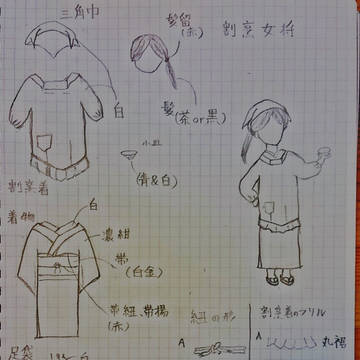 三角巾
髪留
(赤)
割烹女将
白
髪
(茶or黒)
小皿
(青&白)
割烹着
着物
白
濃紺
帯
(白金)
帯紐、帯揚
(赤)
紐の形
A
割烹着のフリル
A
丸裾
足袋
白